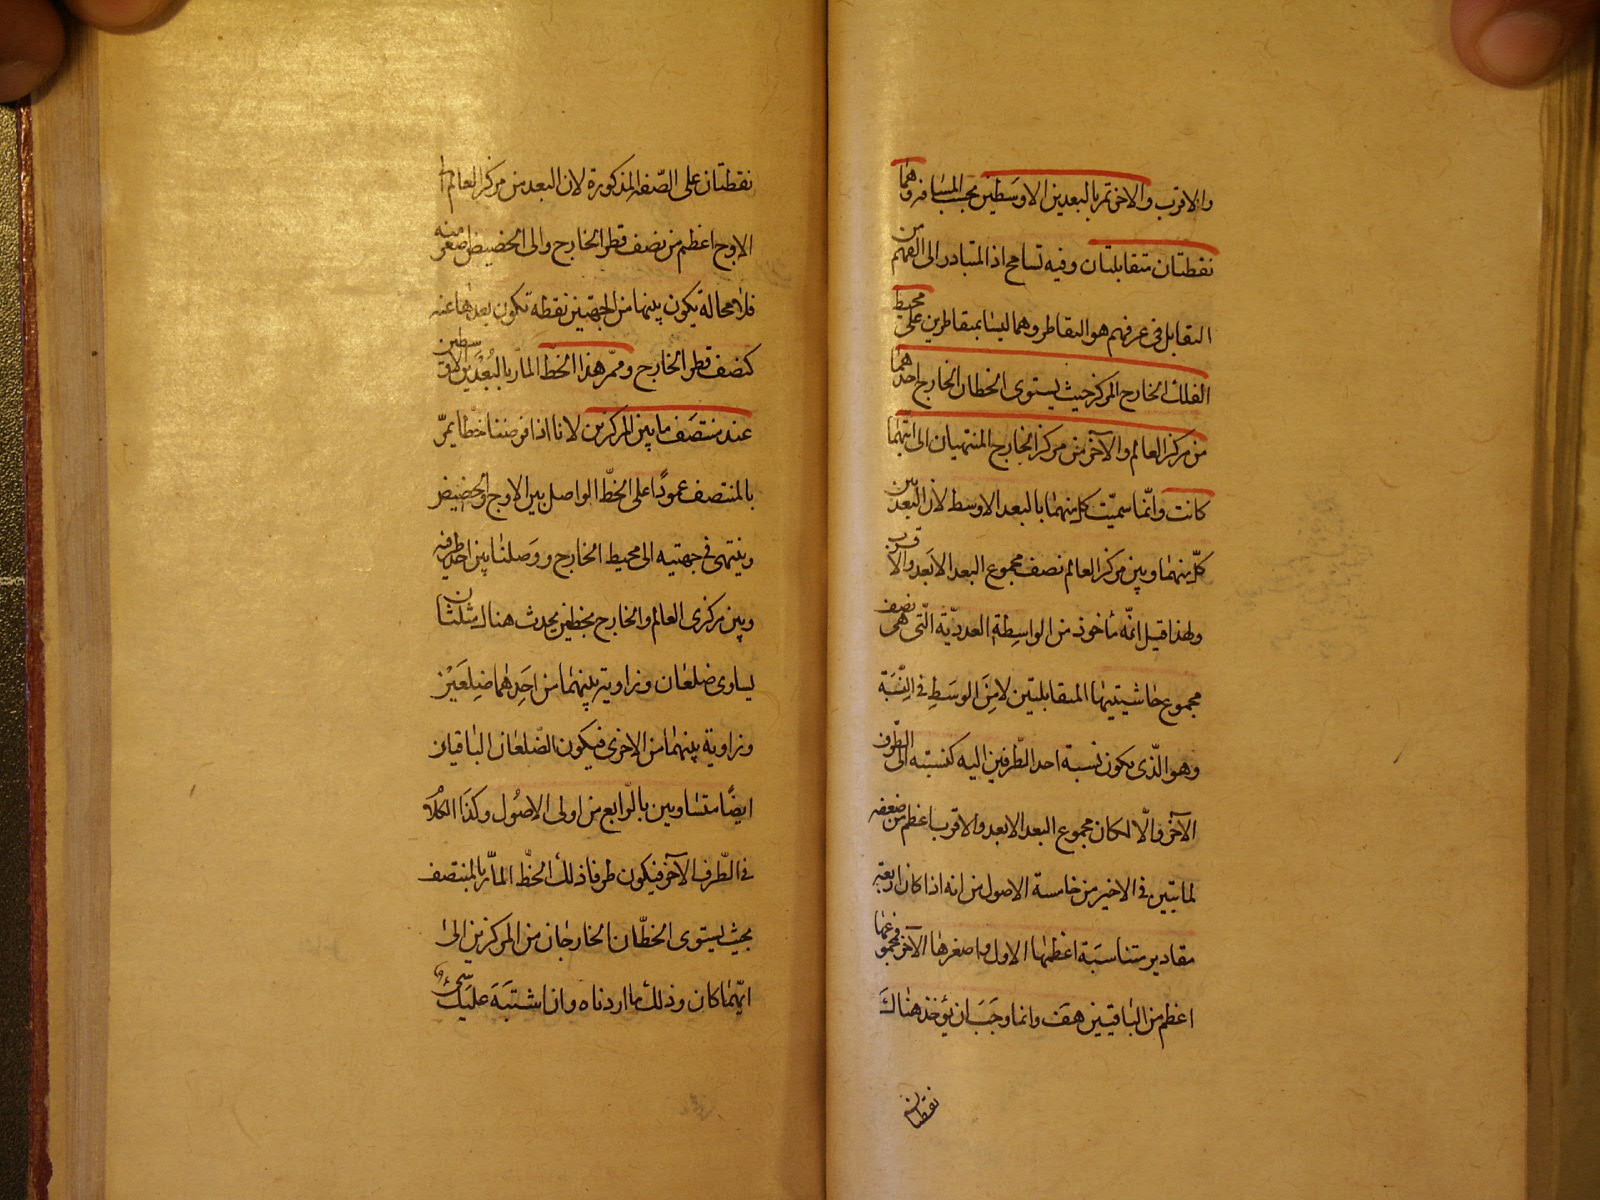 والاقرب والاخر تمر بالبعدين الاوسطين بحسب المسافة وهما
نقطتان متقابلتان وفيه تسامح اذ المتبادر الى الفهم من
التقابل فى عرفهم هو التقاطر وهما ليسا بمتقاطرين على محيط
الفلك الخارج المركز حيث يستوى الخطان الخارج احدهما
من مركز العالم والآخر من مركز الخارج المنتهيان الى ايتهما
كانت وانّما سميّت كل منهما بالبعد الاوسط لان البعد بين
كلّ منهما وبين مركز العالم نصف مجموع البعد الابعد والاقرب
ولهذا قيل انّه مأخوذ من الواسِطة العدديّة الّتى هى نصف
مجموع حاشيتيها المتقابلتين لا مِنَ الوسَطِ فى النِّسْبَة
وهو الّذى يكون نسبة احد الطّرفين اليه كنسبته الى الطّرف
الآخر والّا لكان مجموع البعد الابعد والاقرب اعظم من ضعفه
لما تبيّن فى الاخير من خامسة الاصول من انه اذا كان اربعة
مقادير متناسَبة اعظمها الاول واصغرها الآخر فمجموعهما
اعظم من الباقيين هف وانما وجَبَ ان يؤخذ هناك
نقطتان
نقطتان على الصّفة المذكورة لان البعد من مركز العالم الى
الاوج اعظم من نصف قطر الخارج والى الحضيض اصغر منه
فلا محالة يكون بينهما من الجهتين نقطة تكون بعدها عنه
كنصف قطر الخارج وممرّ هذا الخطّ المارّ بالبُعْدَين الاوسطين
عند منتصَف ما بين المركزين لانا اذا فرضنا خطّا يمرّ
بالمنتصف عمودًا على الخطّ الواصل بين الاوج والحضيض
وينتهى فى جهتيه الى محيط الخارج ووَصلنا بين احد طرفيه
وبين مركزى العالم والخارج بخطين يحدث هناك مثلثان
يساوى ضلعان وزاوية بينهما من احَدِهما ضِلعَيْن
وزاوية بينهما من الاخرى فيكون الضّلعان الباقيان
ايضًا متساويين بالرّابع من اولى الاصُول وكذا الكلام
فى الطّرف الآخر فيكون طرفا ذلك الخطّ المارّ بالمنتصف
بحيث يستوى الخطّان الخارجان من المركزين الى
ايّهما كان وذلك ما اردناه وان اشتبَهَ عليك شئ